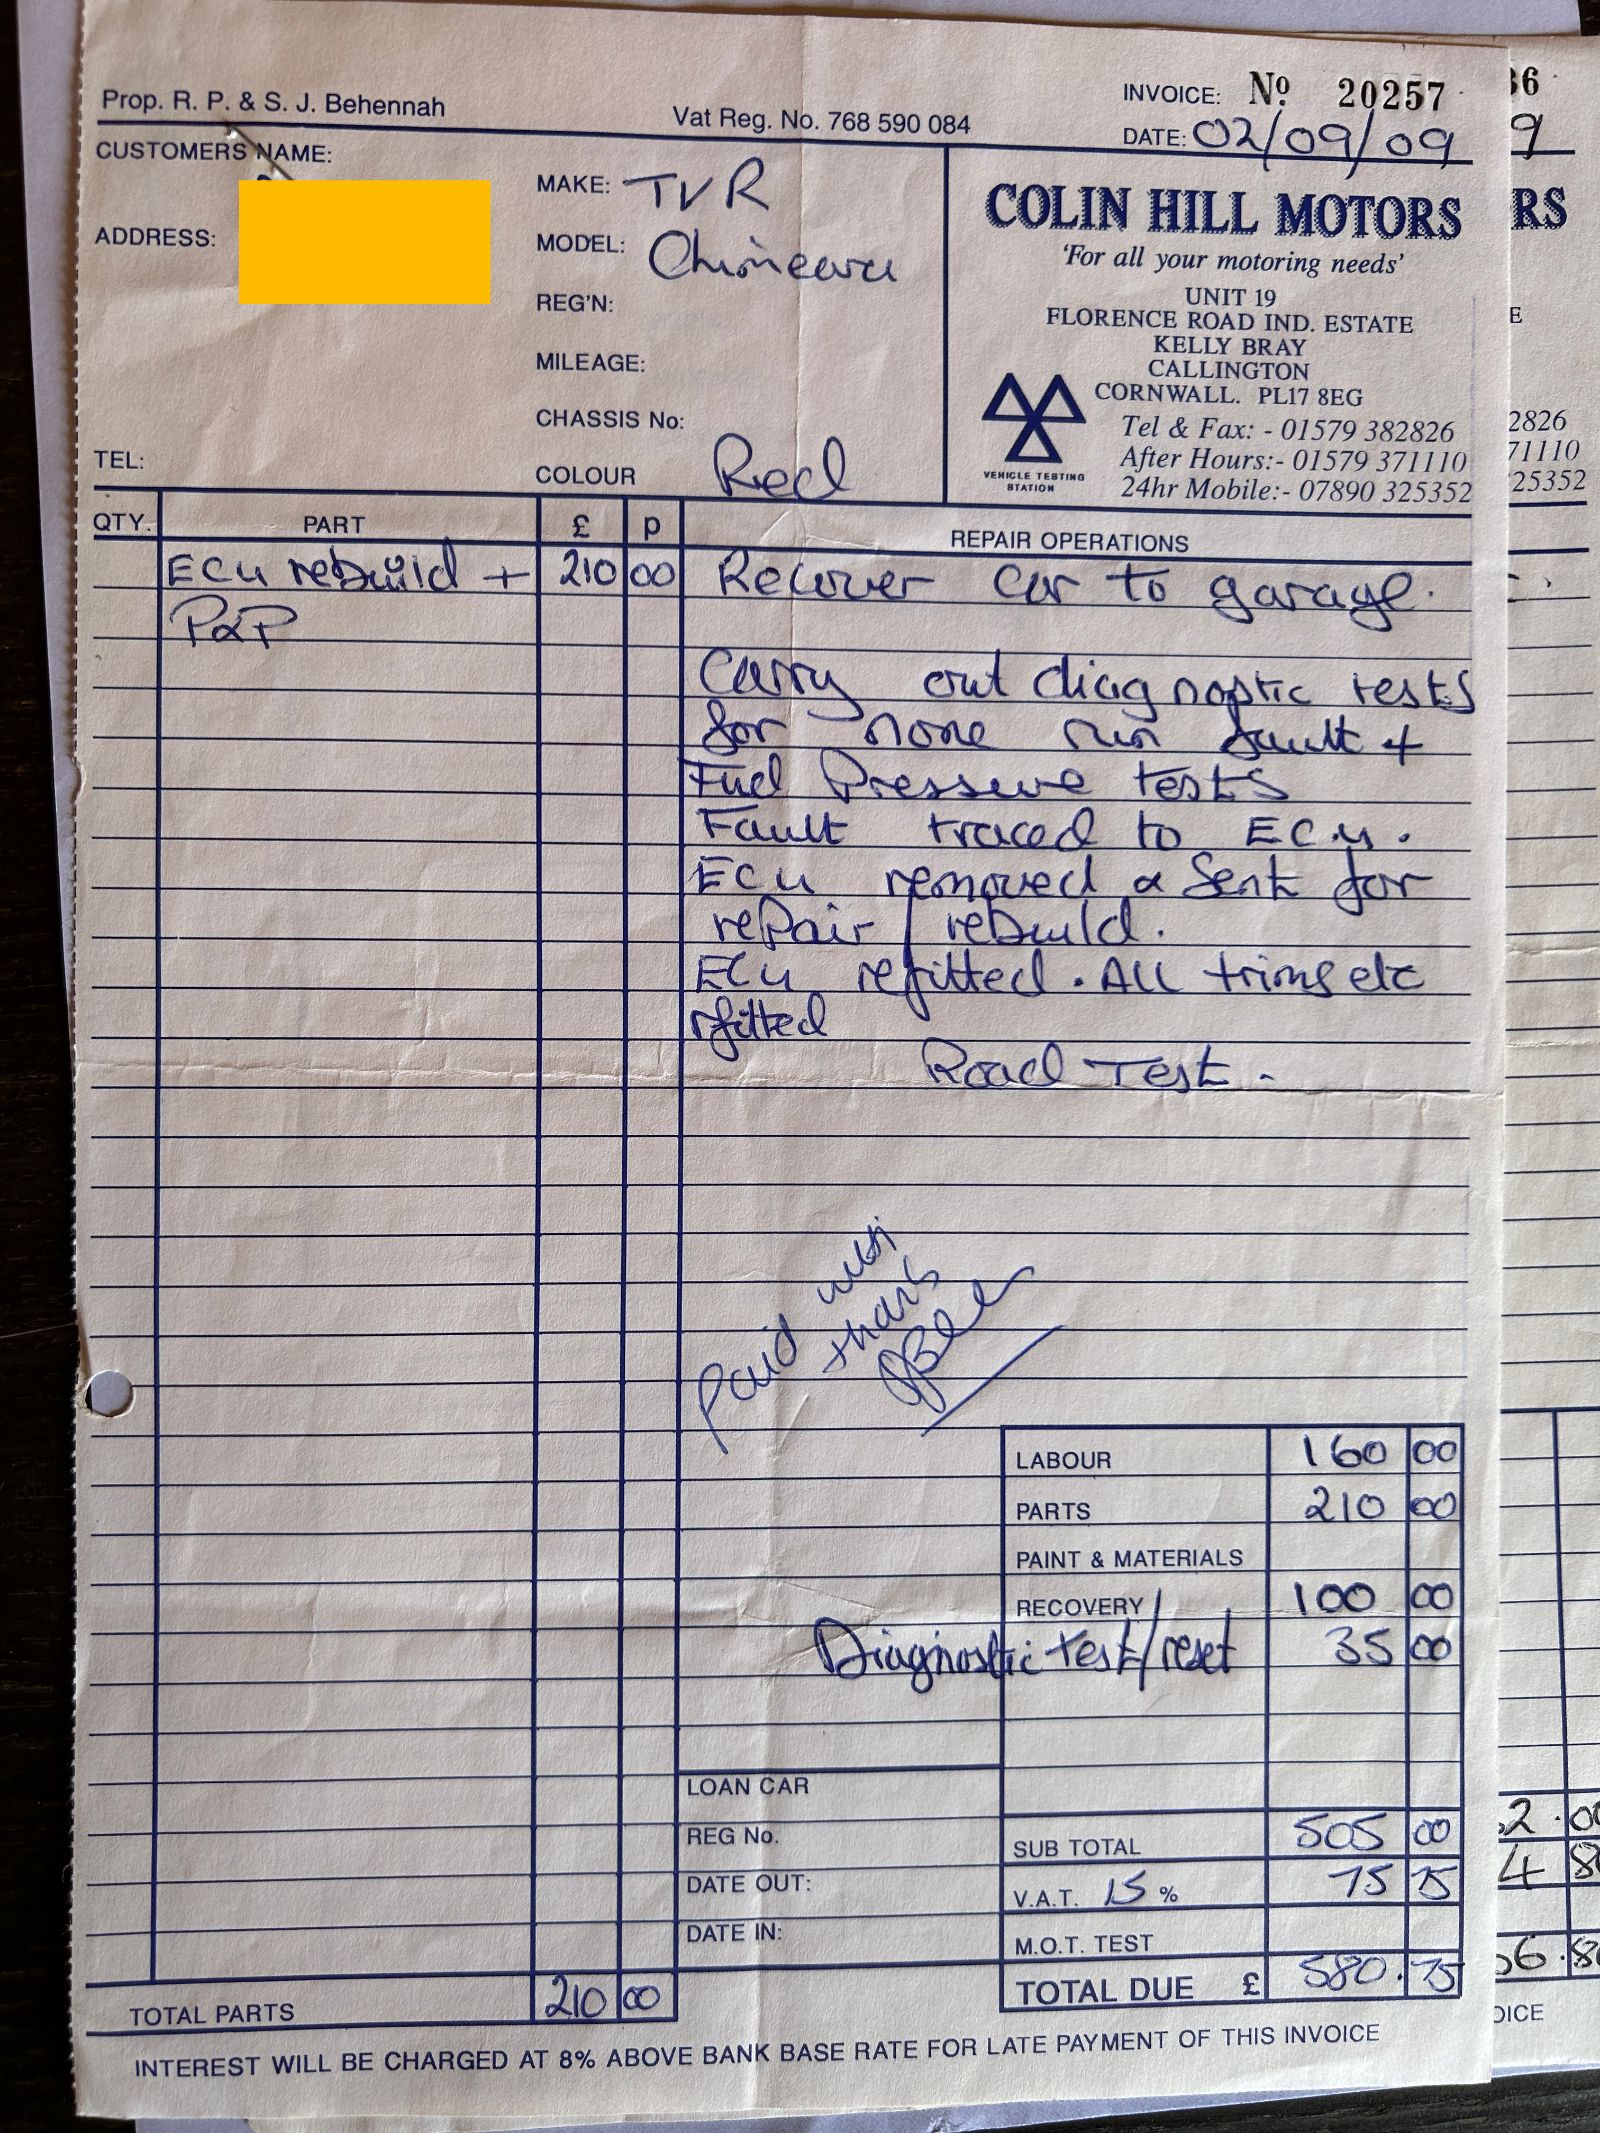 Prop. R. P. & S. J. Behennah
Vat Reg. No. 768 590 084
INVOICE: No 20257
DATE: 02/09/09
CUSTOMERS NAME:
ADDRESS:
TEL:
MAKE: TVR
MODEL: Chimeara
REG'N:
MILEAGE:
CHASSIS No:
COLOUR Red
COLIN HILL MOTORS
'For all your motoring needs'
UNIT 19
FLORENCE ROAD IND. ESTATE
KELLY BRAY
CALLINGTON
CORNWALL. PL17 8EG
Tel & Fax: - 01579 382826
After Hours:- 01579 371110
24hr Mobile:- 07890 325352
VEHICLE TESTING
STATION
QTY. PART £ p REPAIR OPERATIONS
ECU rebuild + 210 00
P&P
Recover car to garage.
Carry out diagnostic tests
for none run fault +
Fuel Pressure tests
Fault traced to E.C.U.
ECU removed & Sent for
repair / rebuild.
ECU refitted. All trims etc
rfitted
Road Test.
Paid with
thanks
LABOUR 160 00
PARTS 210 00
PAINT & MATERIALS
RECOVERY 100 00
Diagnostic test/reset 35 00
LOAN CAR
REG No.
DATE OUT:
DATE IN:
SUB TOTAL 505 00
V.A.T. 15 % 75 75
M.O.T. TEST
TOTAL DUE £ 580.75
TOTAL PARTS 210 00
INTEREST WILL BE CHARGED AT 8% ABOVE BANK BASE RATE FOR LATE PAYMENT OF THIS INVOICE
36
9
RS
E
2826
71110
25352
2.00
4 8
56.8
OICE